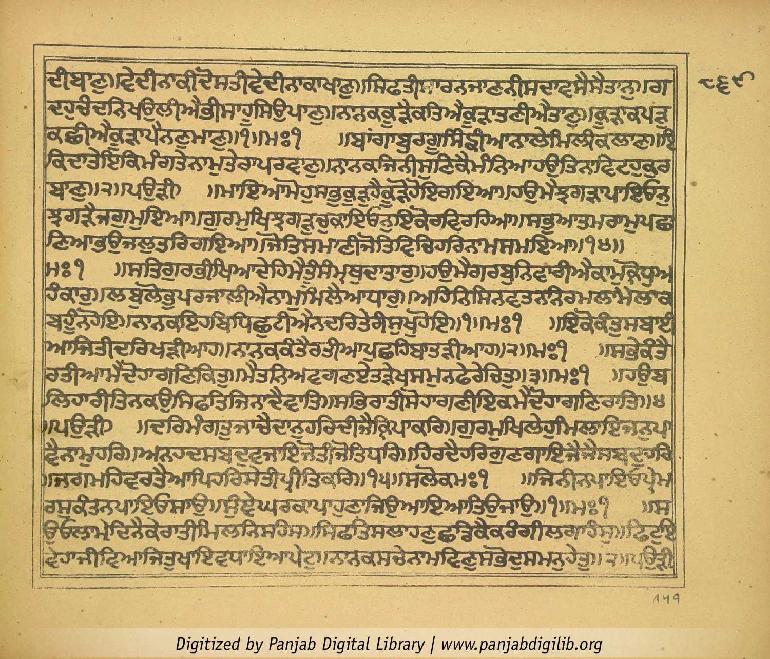 ੮੬੯
ਦੀਬਾਣੁ॥ਵੇਦੀਨਾਕੀਦੋਸਤੀਵੇਦੀਨਾਕਾਖਾਣੁ॥ਸਿਫਤੀਸਾਰਨਜਾਣਨੀਸਦਾਵਸੈਸੈਤਾਨੁ॥ਗ
ਦਹੁਚੰਦਨਿਖਉਲੀਐਭੀਸਾਹੂਸਿਉਪਾਣੁ॥ਨਾਨਕਕੂੜੈਕਤਿਐਕੂੜਾਤਣੀਐਤਾਣੁ॥ਕੂੜਾਕਪੜੁ
ਕਛੀਐਕੂੜਾਪੈਨਣੁਮਾਣੁ॥੧॥ਮਃ੧ ॥ਬਾਂਗਾਬੁਰਗੂਸਿੰਙੀਆਨਾਲੇਮਿਲੀਕਲਾਣ॥ਇ
ਕਿਦਾਤੇਇਕਿਮੰਗਤੇਨਾਮੁਤੇਰਾਪਰਵਾਣੁ॥ਨਾਨਕਜਿਨੀਸੁਣਿਕੈਮੰਨਿਆਹਉਤਿਨਾਵਿਟਹੁਕੁਰ
ਬਾਣੁ॥੨॥ਪਉੜੀ ॥ਮਾਇਆਮੋਹੁਸਭੁਕੂੜੁਹੈਕੂੜੋਹੋਇਗਇਆ॥ਹਉਮੈਝਗੜਾਪਾਇਓਨੁ
ਝਗੜੈਜਗੁਮੁਇਆ॥ਗੁਰਮੁਖਿਝਗੜੁਚੁਕਾਇਓਨੁਇਕੋਰਵਿਰਹਿਆ॥ਸਭੁਆਤਮਰਾਮੁਪਛਾ
ਣਿਆਭਉਜਲੁਤਰਿਗਇਆ॥ਜੋਤਿਸਮਾਣੀਜੋਤਿਵਿਚਿਹਰਿਨਾਮਿਸਮਇਆ॥੧੪॥
ਮਃ੧ ॥ਸਤਿਗੁਰਭੀਖਿਆਦੇਹਿਮੈਤੂੰਸੰਮ੍ਰਥੁਦਾਤਾਰੁ॥ਹਉਮੈਗਰਬੁਨਿਵਾਰੀਐਕਾਮੁਕ੍ਰੋਧੁਅ
ਹੰਕਾਰੁ॥ਲਬੁਲੋਭੁਪਰਜਾਲੀਐਨਾਮੁਮਿਲੈਆਧਾਰੁ॥ਅਹਿਨਿਸਿਨਵਤਨਨਿਰਮਲਾਮੈਲਾਕ
ਬਹੂੰਨਹੋਇ॥ਨਾਨਕਇਹਬਿਧਿਛੁਟੀਐਨਦਰਿਤੇਰੀਸੁਖੁਹੋਇ॥੧॥ਮਃ੧ ॥ਇਕੋਕੰਤੁਸਬਾਈ
ਆਜਿਤੀਦਰਿਖੜੀਆਹ॥ਨਾਨਕਕੰਤੈਰਤੀਆਪੁਛਹਿਬਾਤੜੀਆਹ॥੨॥ਮਃ੧ ॥ਸਭੇਕੰਤੈ
ਰਤੀਆਮੈਦੋਹਾਗਣਿਕਿਤੁ॥ਮੈਤਨਿਅਵਗਣਏਤੜੇਖਸਮੁਨਫੇਰੇਚਿਤੁ॥੩॥ਮਃ੧ ॥ਹਉਬ
ਲਿਹਾਰੀਤਿਨਕਉਸਿਫਤਿਜਿਨਾਦੈਵਾਤਿ॥ਸਭਿਰਾਤੀਸੋਹਾਗਣੀਇਕਮੈਦੋਹਾਗਣਿਰਾਤਿ॥੪
॥ਪਉੜੀ ॥ਦਰਿਮੰਗਤੁਜਾਚੈਦਾਨੁਹਰਿਦੀਜੈਕ੍ਰਿਪਾਕਰਿ॥ਗੁਰਮੁਖਿਲੇਹੁਮਿਲਾਇਜਨੁਪਾ
ਵੈਨਾਮੁਹਰਿ॥ਅਨਹਦਸਬਦੁਵਜਾਇਜੋਤੀਜੋਤਿਧਰਿ॥ਹਿਰਦੈਹਰਿਗੁਣਗਾਇਜੈਜੈਸਬਦੁਹਰਿ
॥ਜਗਮਹਿਵਰਤੈਆਪਿਹਰਿਸੇਤੀਪ੍ਰੀਤਿਕਰਿ॥੧੫॥ਸਲੋਕਮਃ੧ ॥ਜਿਨੀਨਪਾਇਓਪ੍ਰੇਮ
ਰਸੁਕੰਤਨਪਾਇਓਸਾਉ॥ਸੁੰਞੇਘਰਕਾਪਾਹੁਣਾਜਿਉਆਇਆਤਿਉਜਾਉ॥੧॥ਮਃ੧ ॥ਸ
ਉਓਲਾਮੇਦਿਨੈਕੇਰਾਤੀਮਿਲਨਿਸਹੰਸ॥ਸਿਫਤਿਸਲਾਹਣੁਛਡਿਕੈਕਰੰਗੀਲਗਾਹੰਸੁ॥ਫਿਟੁਇ
ਵੇਹਾਜੀਵਿਆਜਿਤੁਖਾਇਵਧਾਇਆਪੇਟੁ॥ਨਾਨਕਸਚੇਨਾਮਵਿਣੁਸਭੋਦੁਸਮਨੁਹੇਤੁ॥੨॥ਪਉੜੀ
Digitized by Panjab Digital Library | www.panjabdigilib.org